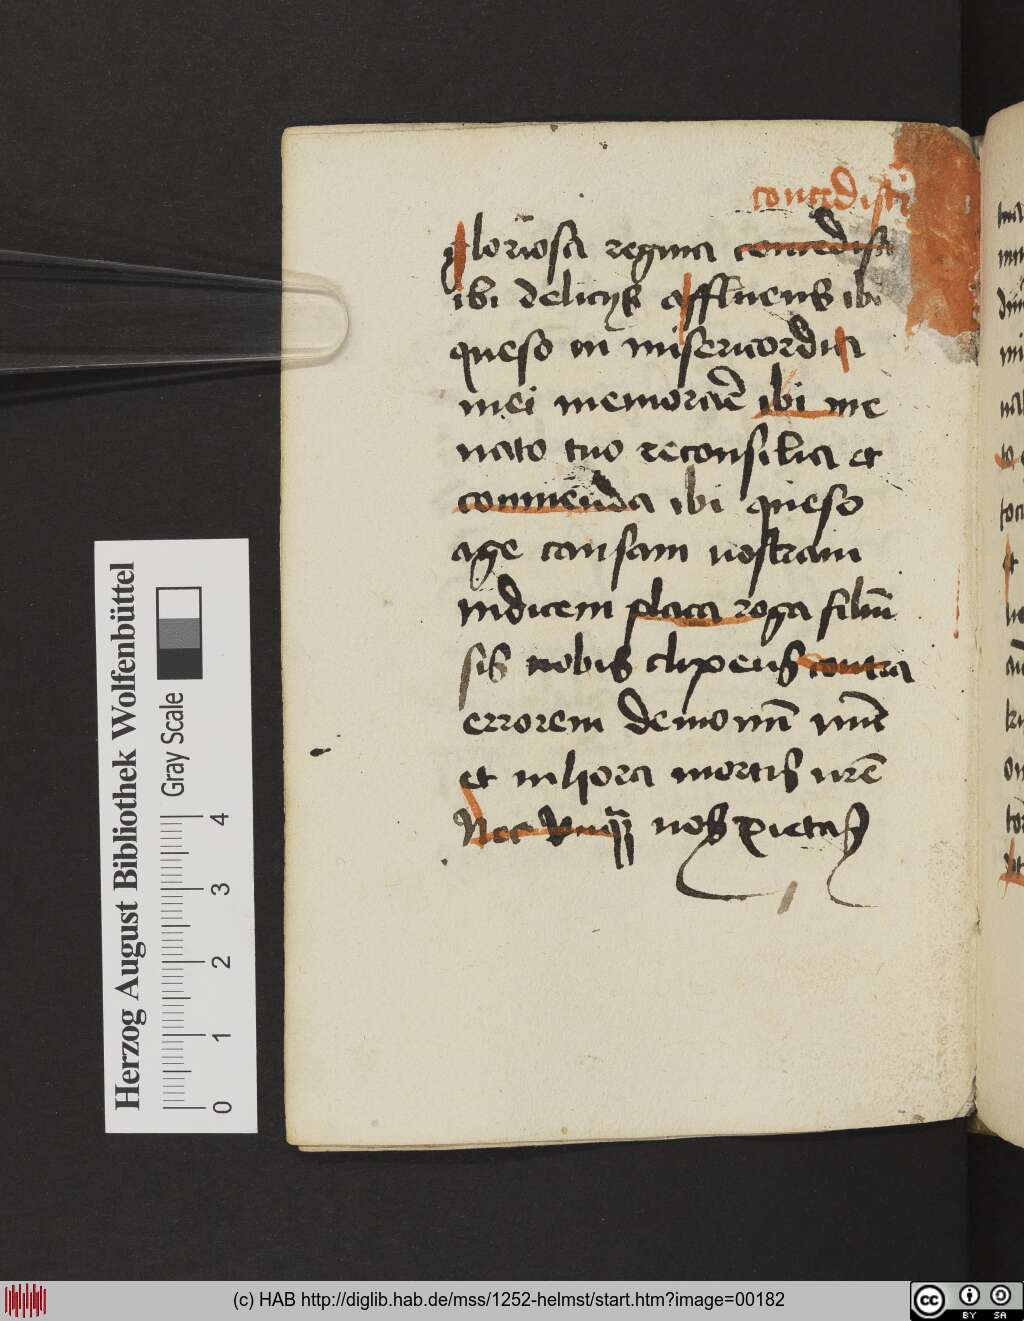 concedisti
gloriosa regina concedisti
ibi delicijs affluens ibi
queso in misericordia
mei memorare ibi me
nato tuo reconsilia et
conmenda ibi queso
age causam nostram
iudicem placa roga filiū
sis nobis clipeus contra
errorem demonū
et in hora mortis nr̄e
nos pietas
Herzog August Bibliothek Wolfenbüttel
Gray Scale
0 1 2 3 4
(c) HAB http://diglib.hab.de/mss/1252-helmst/start.htm?image=00182
cc BY SA